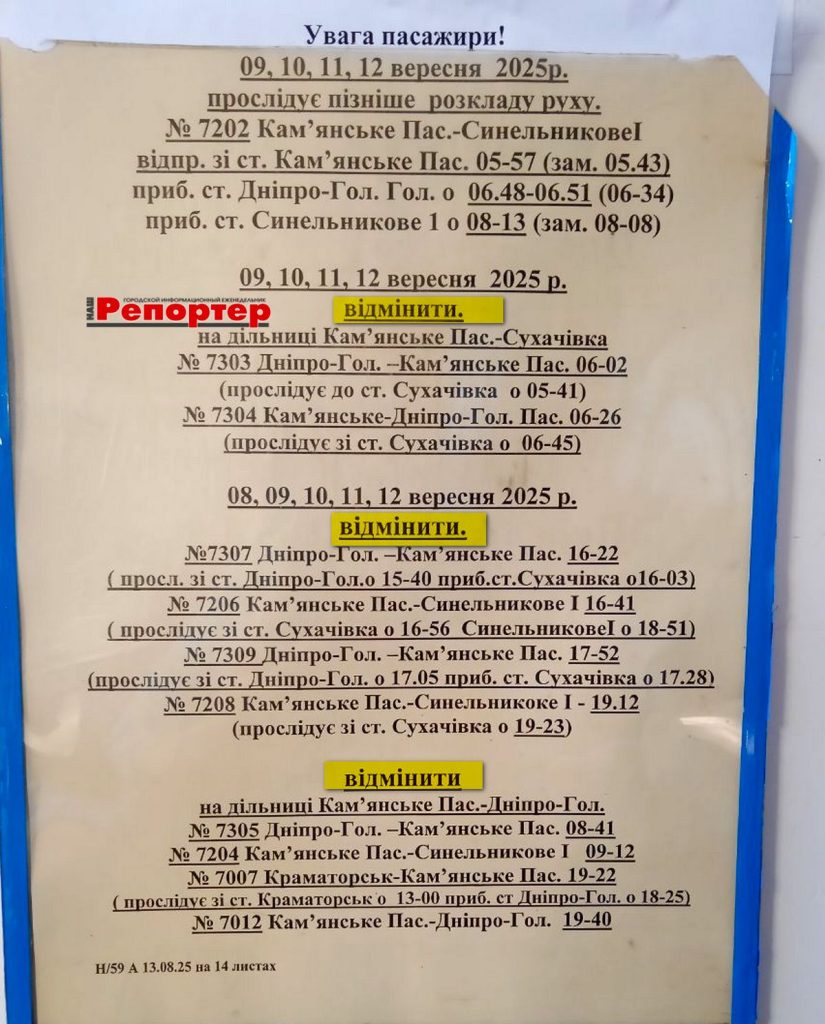 Увага пасажири!
09, 10, 11, 12 вересня 2025р.
прослідує пізніше розкладу руху.
№ 7202 Кам’янське Пас.-СинельниковеІ
відпр. зі ст. Кам’янське Пас. 05-57 (зам. 05.43)
приб. ст. Дніпро-Гол. Гол. о 06.48-06.51 (06-34)
приб. ст. Синельникове 1 о 08-13 (зам. 08-08)
09, 10, 11, 12 вересня 2025 р.
НАШ
ГОРОДСКОЙ ИНФОРМАЦИОННЫЙ ЕЖЕНЕДЕЛЬНИК
Репортер
відмінити.
на дільниці Кам’янське Пас.-Сухачівка
№ 7303 Дніпро-Гол. –Кам’янське Пас. 06-02
(прослідує до ст. Сухачівка о 05-41)
№ 7304 Кам’янське-Дніпро-Гол. Пас. 06-26
(прослідує зі ст. Сухачівка о 06-45)
08, 09, 10, 11, 12 вересня 2025 р.
відмінити.
№7307 Дніпро-Гол. –Кам’янське Пас. 16-22
( просл. зі ст. Дніпро-Гол.о 15-40 приб.ст.Сухачівка о16-03)
№ 7206 Кам’янське Пас.-Синельникове І 16-41
( прослідує зі ст. Сухачівка о 16-56 СинельниковеІ о 18-51)
№ 7309 Дніпро-Гол. –Кам’янське Пас. 17-52
(прослідує зі ст. Дніпро-Гол. о 17.05 приб. ст. Сухачівка о 17.28)
№ 7208 Кам’янське Пас.-Синельникоке І - 19.12
(прослідує зі ст. Сухачівка о 19-23)
відмінити
на дільниці Кам’янське Пас.-Дніпро-Гол.
№ 7305 Дніпро-Гол. –Кам’янське Пас. 08-41
№ 7204 Кам’янське Пас.-Синельникове І 09-12
№ 7007 Краматорськ-Кам’янське Пас. 19-22
( прослідує зі ст. Краматорськ о 13-00 приб. ст Дніпро-Гол. о 18-25)
№ 7012 Кам’янське Пас.-Дніпро-Гол. 19-40
Н/59 А 13.08.25 на 14 листах